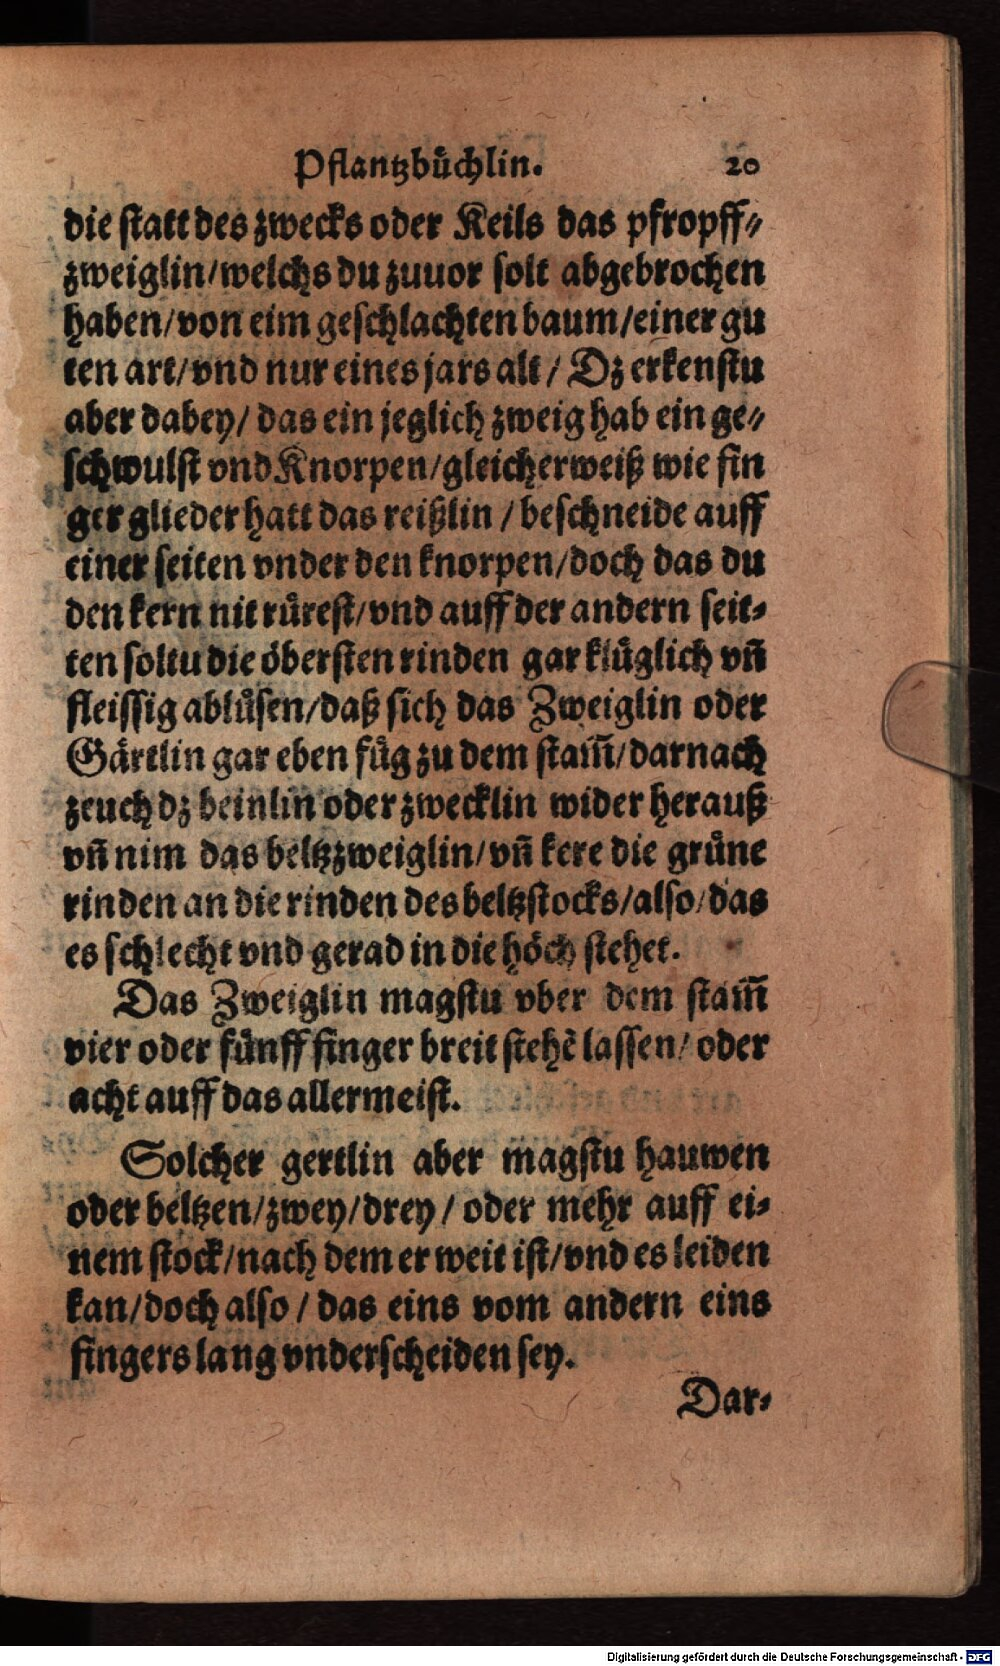 Pflantzbuͤchlin. 20
die statt des zwecks oder Keils das pfropff⸗
zweiglin/welchs du zuuor solt abgebrochen
haben/von eim geschlachten baum/einer gu
ten art/vnd nur eines jars alt/ Dz erkenstu
aber dabey/ das ein jeglich zweig hab ein ge⸗
schwulst vnd Knorpen/gleicherweiß wie fin
ger glieder hatt das reißlin / beschneide auff
einer seiten vnder den knorpen/doch das du
den kern nit ruͤrest/vnd auff der andern seit⸗
ten soltu die oͤbersten rinden gar kluͤglich vñ
fleissig abluͤsen/daß sich das Zweiglin oder
Gaͤrtlin gar eben fuͤg zu dem stam̃/darnach
zeuch dz beinlin oder zwecklin wider herauß
vñ nim das beltzzweiglin/vñ kere die gruͤne
rinden an die rinden des beltzstocks/also/das
es schlecht vnd gerad in die hoͤch stehet.
Das Zweiglin magstu vber dem stam̃
vier oder fuͤnff finger breit stehẽ lassen/ oder
acht auff das allermeist.
Solcher gertlin aber magstu hauwen
oder beltzen/zwey/drey/ oder mehr auff ei⸗
nem stock/nach dem er weit ist/vnd es leiden
kan/doch also / das eins vom andern eins
fingers lang vnderscheiden sey.
Dar⸗
Digitalisierung gefördert durch die Deutsche Forschungsgemeinschaft - DFG